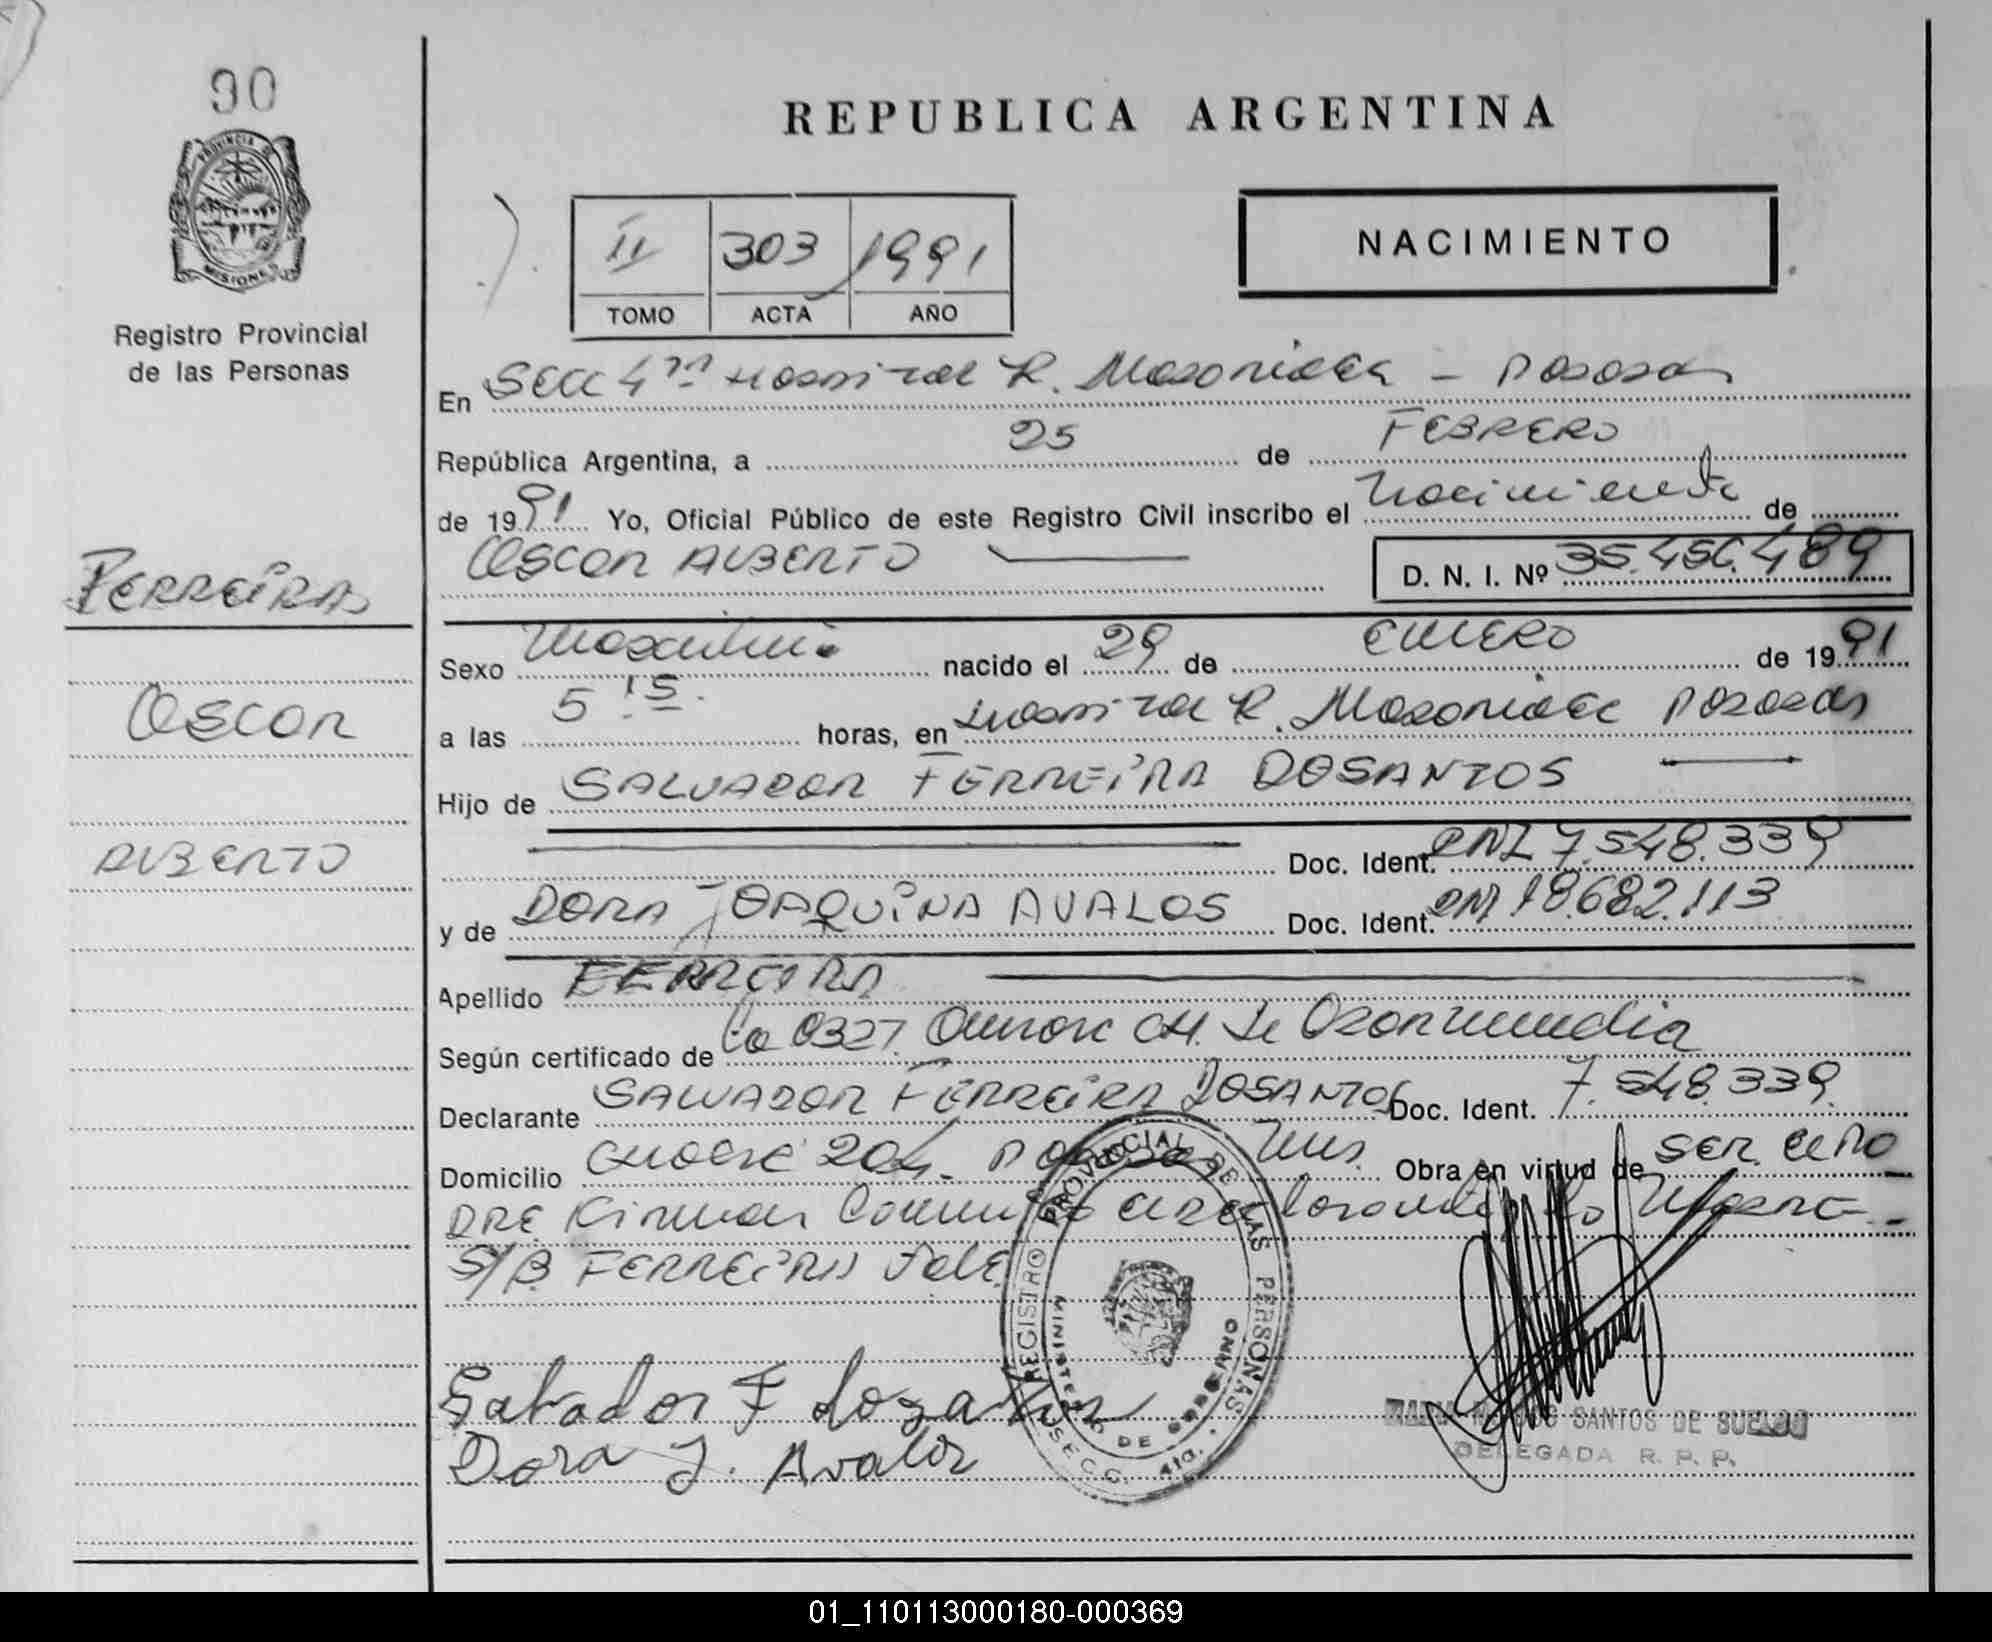 90
PROVINCIA DE
MISIONES
Registro Provincial
de las Personas
REPUBLICA ARGENTINA
II 303 1991
TOMO ACTA AÑO
NACIMIENTO
En Secc 4ta Hospital R. Madariaga - Posadas
República Argentina, a 25 de FEBRERO
de 1991 Yo, Oficial Público de este Registro Civil inscribo el Nacimiento de
OSCAR ALBERTO D. N. I. Nº 35.456.489
FERREIRA
OSCAR
ALBERTO
Sexo Masculino nacido el 29 de ENERO de 1991
a las 5 15 horas, en Hospital R. Madariaga Posadas
Hijo de SALVADOR FERREIRA DOSANTOS
Doc. Ident. DNI 7.548.339
y de DORA JOAQUINA AVALOS Doc. Ident. DNI 18.682.113
Apellido FERREIRA
Según certificado de La 0327
Declarante SALVADOR FERREIRA DOSANTOS Doc. Ident. 7.548.339
Domicilio 204 Posadas Mns. Obra en virtud de SER. EL PA
DRE Firman
S/B FERREIRA Vale
Salvador F dosantos
Dora J. Avalos
REGISTRO PROVINCIAL DE LAS PERSONAS
MINISTERIO DE GOBIERNO
SECC. 4ta.
SANTOS DE
DELEGADA R. P. P.
01_110113000180-000369